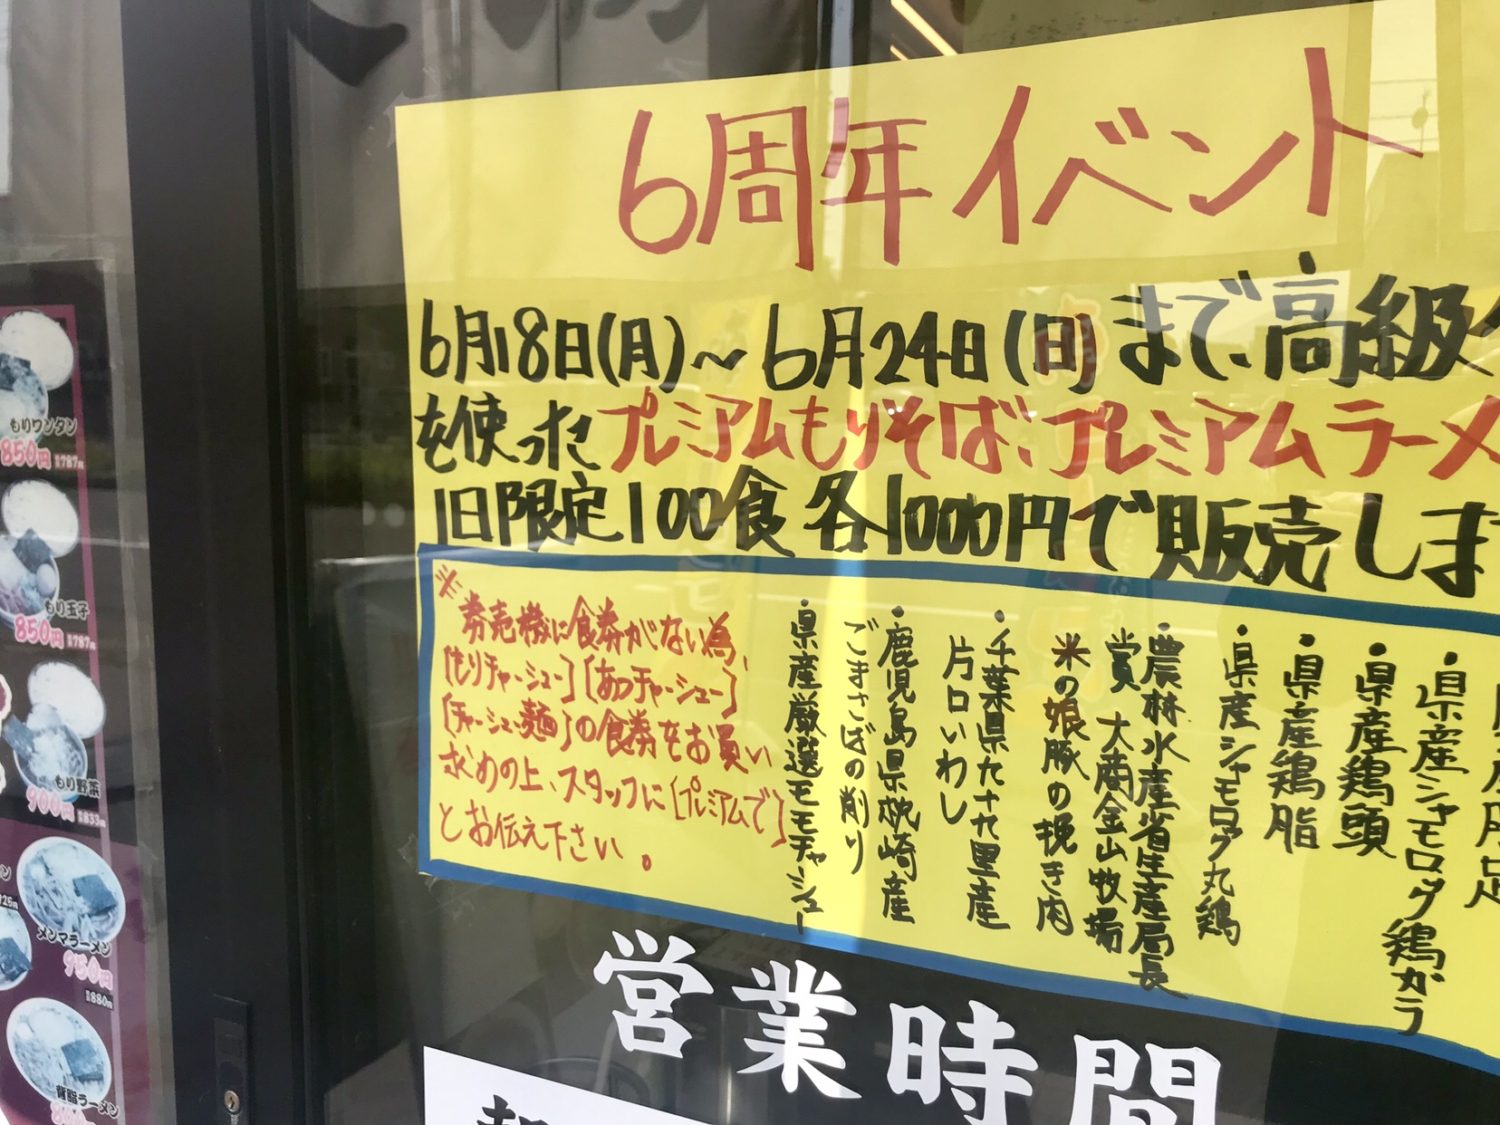 6周年イベント
6月18日(月)〜6月24日(日)まで、高級
を使ったプレミアムもりそば、プレミアムラーメ
1日限定100食 各1000円で販売しま
※券売機に食券がない為、
[もりチャーシュー][あつチャーシュー]
[チャーシュー麺]の食券をお買い
求めの上、スタッフに[プレミアムで]
とお伝え下さい。
・県産シャモロック鶏ガラ
・県産鶏頭
・県産鶏脂
・県産シャモロック丸鶏
・農林水産省生産局長
賞 大商金山牧場
米の娘豚の挽き肉
・千葉県九十九里産
片口いわし
・鹿児島県枕崎産
ごまさばの削り
・県産厳選モモチャーシュー
営業時間
もりワンタン
850円 税787円
もり玉子
850円 税787円
もり野菜
900円 税833円
メンマラーメン
950円
税880円
背脂ラーメン